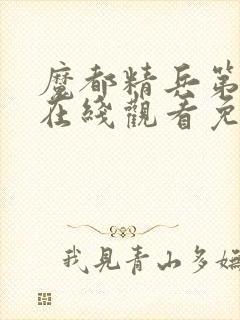 魔都精兵第
在綫觀看免
我見青山多嫵